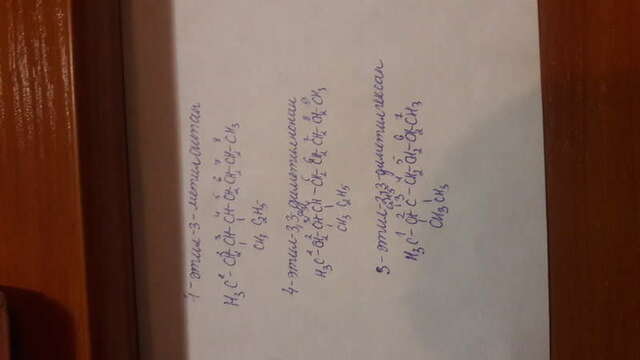 4-этил-3-метилоктан
1 2 3 4 5 6 7 8
H₃C-CH₂-CH-CH-CH₂-CH₂-CH₂-CH₃
CH₃ C₂H₅
4-этил-3,3-диметилнонан
H₃C-CH₂-CH-CH-CH₂-CH₂-CH₂-CH₂-CH₃
CH₃ C₂H₅
3-этил-2,3-диметилгексан
H₃C-CH-C-CH₂-CH₂-CH₂-CH₃
CH₃ CH₃